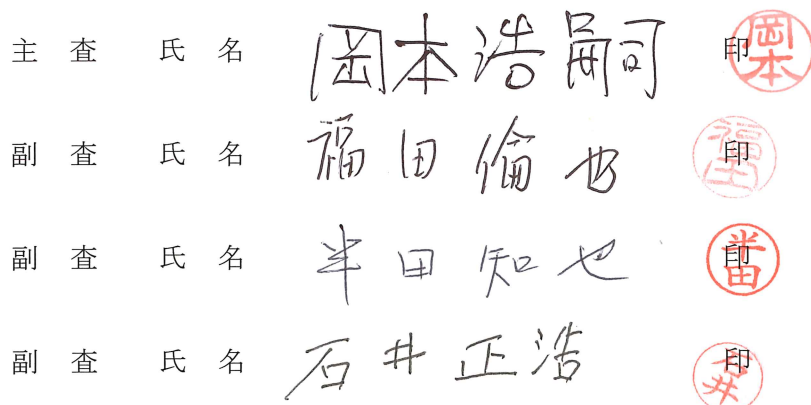 主 査 氏 名 岡本浩嗣 印 岡本
副 査 氏 名 福田倫也 印
副 査 氏 名 半田知也 印 半田
副 査 氏 名 石井正浩 印 石井